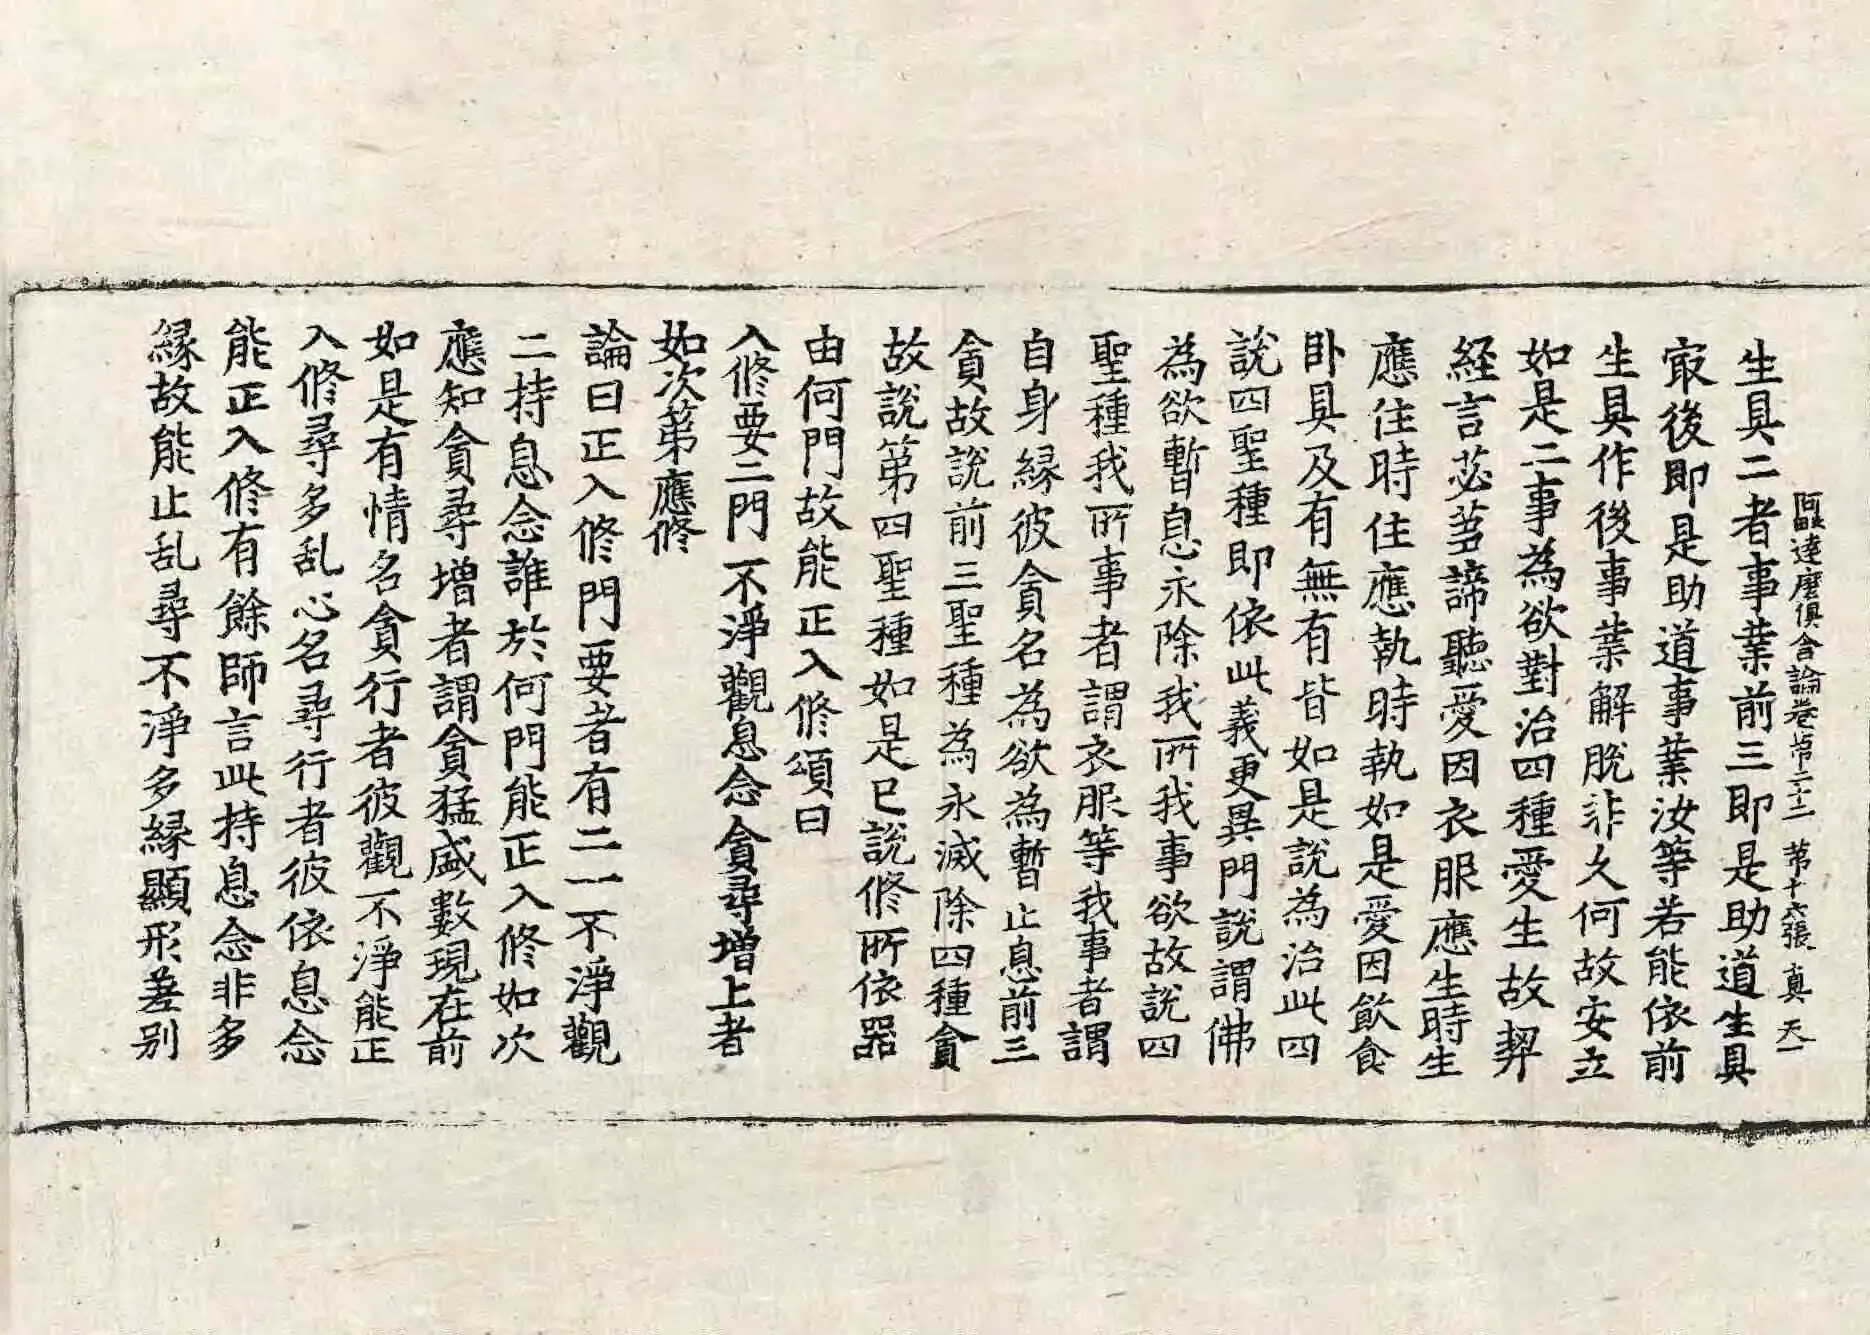 阿毗達磨俱舍論卷苐二十二 苐十六張 真 天一
生具二者事業前三即是助道生具
㝡後即是助道事業汝等若能依前
生具作後事業解脫非久何故安立
如是二事為欲對治四種愛生故契
經言苾芻諦聽愛因衣服應生時生
應住時住應執時執如是愛因飲食
卧具及有無有皆如是說為治此四
說四聖種即依此義更異門說謂佛
為欲暫息永除我所我事欲故說四
聖種我所事者謂衣服等我事者謂
自身縁彼貪名為欲為暫止息前三
貪故說前三聖種為永滅除四種貪
故說第四聖種如是已說修所依器
由何門故能正入修頌曰
入修要二門 不淨觀息念 貪尋增上者
如次第應修
論曰正入修門要者有二一不淨觀
二持息念誰於何門能正入修如次
應知貪尋增者謂貪猛盛數現在前
如是有情名貪行者彼觀不淨能正
入修尋多乱心名尋行者彼依息念
能正入修有餘師言此持息念非多
縁故能止乱尋不淨多縁顯形差别